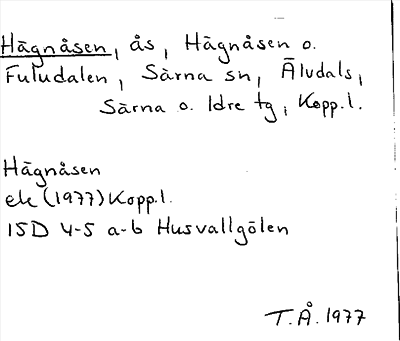 Hägnåsen, ås, Hägnåsen o.
Fuludalen, Särna sn, Äludals,
Särna o. Idre tg, Kopp.l.
Hägnåsen
ek (1977) Kopp.l.
15D 4-5 a-b Husvallgölen
T.Å. 1977